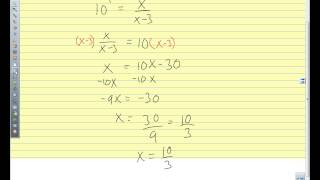 10¹ = x/(x-3)
(x-3) x/(x-3) = 10(x-3)
x = 10x-30
-10x -10x
-9x = -30
x = 30/9 = 10/3
x = 10/3